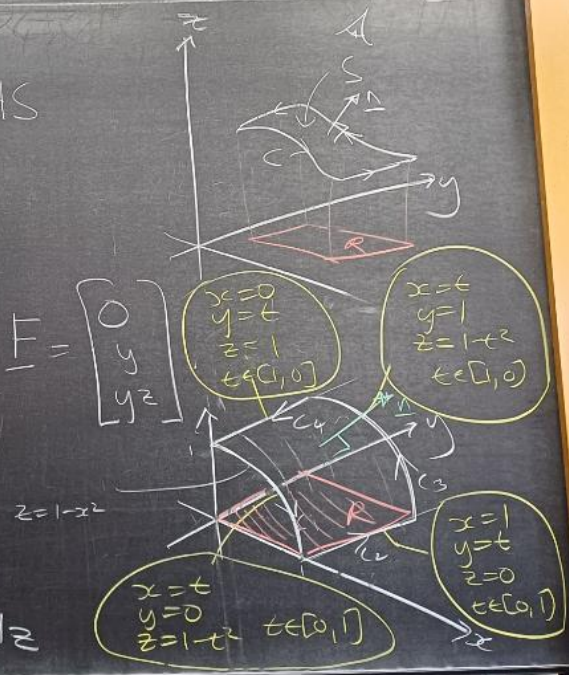 z
S
n
C
y
R
F = [0
y
yz]
x=0
y=t
z=1
t∈[1,0]
x=t
y=1
z=1-t²
t∈[1,0]
n
C4
y
1
C3
z=1-x²
R
C2
x=1
y=t
z=0
t∈[0,1]
x=t
y=0
z=1-t² t∈[0,1]
x